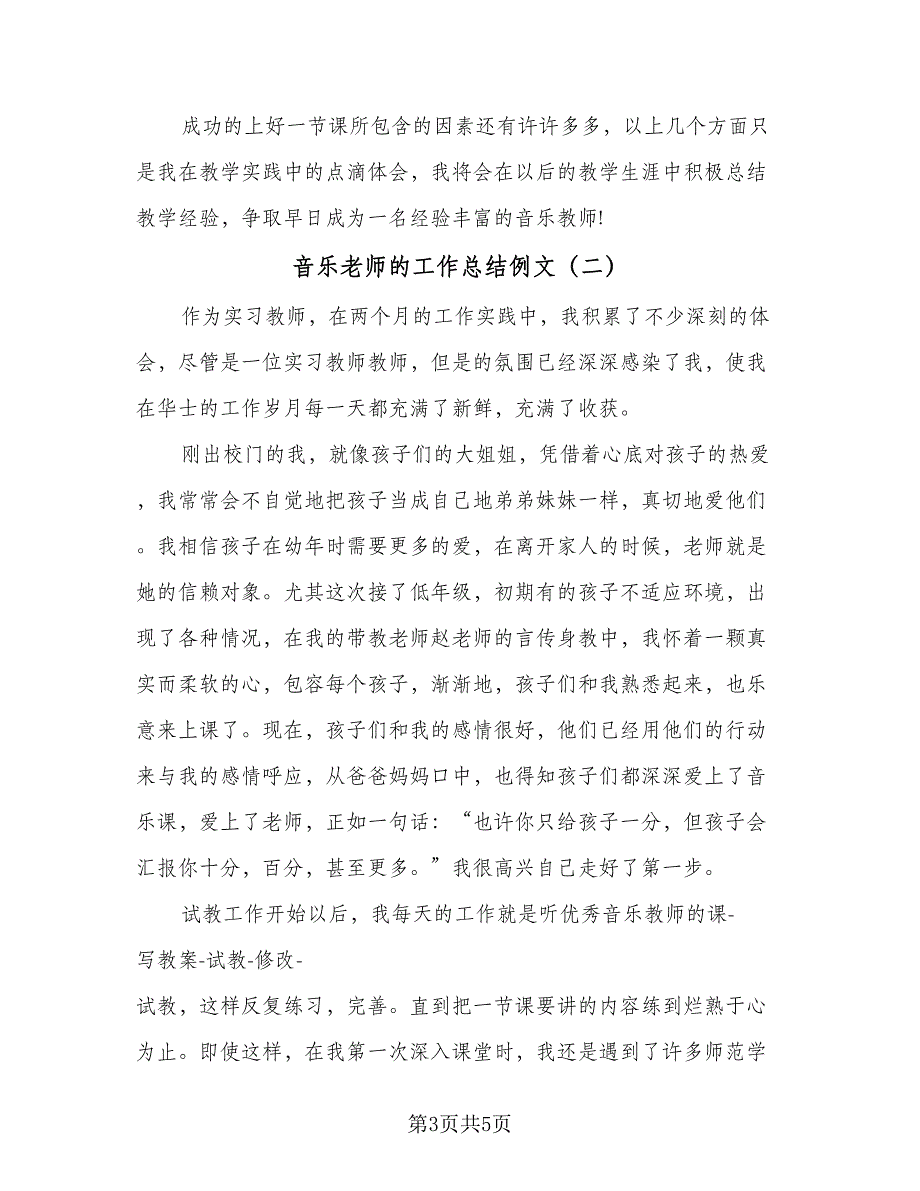 成功的上好一节课所包含的因素还有许许多多，以上几个方面只
是我在教学实践中的点滴体会，我将会在以后的教学生涯中积极总结
教学经验，争取早日成为一名经验丰富的音乐教师!
音乐老师的工作总结例文（二）
作为实习教师，在两个月的工作实践中，我积累了不少深刻的体
会，尽管是一位实习教师教师，但是的氛围已经深深感染了我，使我
在华士的工作岁月每一天都充满了新鲜，充满了收获。
刚出校门的我，就像孩子们的大姐姐，凭借着心底对孩子的热爱
，我常常会不自觉地把孩子当成自己地弟弟妹妹一样，真切地爱他们
。我相信孩子在幼年时需要更多的爱，在离开家人的时候，老师就是
她的信赖对象。尤其这次接了低年级，初期有的孩子不适应环境，出
现了各种情况，在我的带教老师赵老师的言传身教中，我怀着一颗真
实而柔软的心，包容每个孩子，渐渐地，孩子们和我熟悉起来，也乐
意来上课了。现在，孩子们和我的感情很好，他们已经用他们的行动
来与我的感情呼应，从爸爸妈妈口中，也得知孩子们都深深爱上了音
乐课，爱上了老师，正如一句话：“也许你只给孩子一分，但孩子会
汇报你十分，百分，甚至更多。”我很高兴自己走好了第一步。
试教工作开始以后，我每天的工作就是听优秀音乐教师的课-
写教案-试教-修改-
试教，这样反复练习，完善。直到把一节课要讲的内容练到烂熟于心
为止。即使这样，在我第一次深入课堂时，我还是遇到了许多师范学
第3页共5页